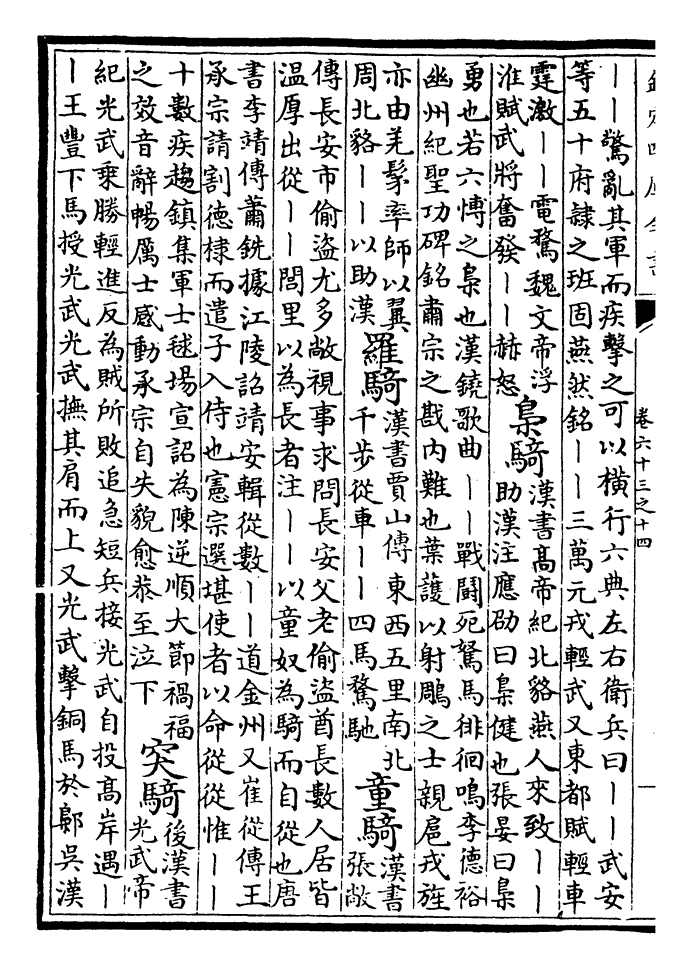 欽定四庫全書
卷六十三之十四
——驚亂其軍而疾擊之可以橫行六典左右衛兵曰——武安
等五十府隸之班固燕然銘——三萬元戎輕武又東都賦輕車
霆激——電騖魏文帝浮
淮賦武將奮發——赫怒
梟騎
漢書髙帝紀北貉燕人來致——
助漢注應劭曰梟健也張晏曰梟
勇也若六愽之梟也漢鐃歌曲——戰鬪死駑馬徘徊鳴李德裕
幽州紀聖功碑銘肅宗之戡内難也葉䕶以射鵰之士親扈戎旌
亦由羌髳率師以翼
周北貉——以助漢
羅騎
漢書賈山傳東西五里南北
千步從車——四馬騖馳
童騎
漢書
張敞
傳長安市偷盗尤多敞視事求問長安父老偷盗酋長數人居皆
温厚出從——閭里以為長者注——以童奴為騎而自從也唐
書李靖傳蕭銑據江陵詔靖安輯從數——道金州又崔從傳王
承宗請割德棣而遣子入侍也憲宗選堪使者以命從從惟——
十數疾趨鎮集軍士毬場宣詔為陳逆順大節禍福
之效音辭暢厲士感動承宗自失貌愈恭至泣下
突騎
後漢書
光武帝
紀光武乘勝輕進反為賊所敗追急短兵接光武自投髙岸遇—
—王豐下馬授光武光武撫其肩而上又光武擊銅馬於鄡吳漢